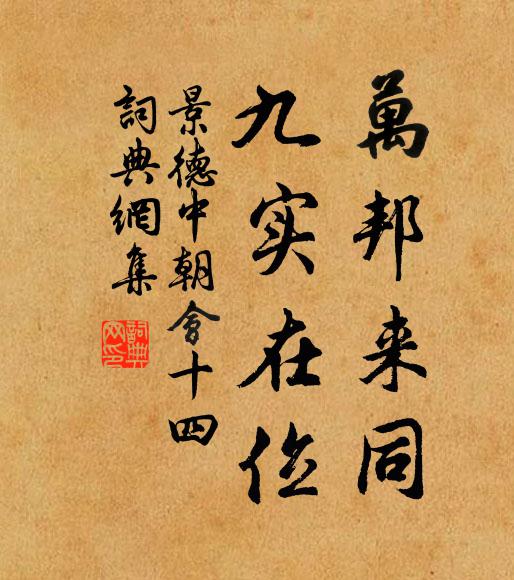 萬邦来同
九实在位
景德中朝會十四
詞典網集
詞典網印